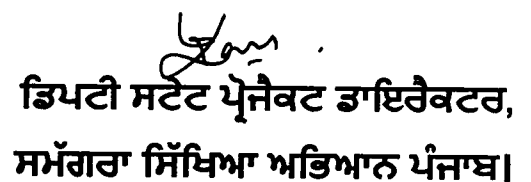 ਡਿਪਟੀ ਸਟੇਟ ਪ੍ਰੋਜੈਕਟ ਡਾਇਰੈਕਟਰ,
ਸਮੱਗਰਾ ਸਿੱਖਿਆ ਅਭਿਆਨ ਪੰਜਾਬ।